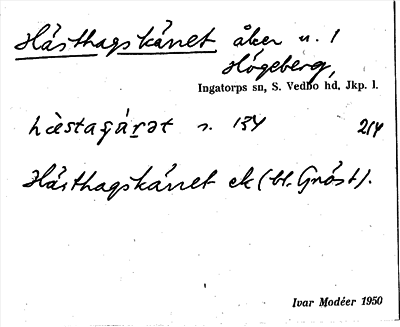 Hästhagskärret åker n. 1
Högeberg,
Ingatorps sn, S. Vedbo hd, Jkp. l.
hæstagárət n. 134 214
Hästhagskärret ek (bl. Gröst).
Ivar Modéer 1950